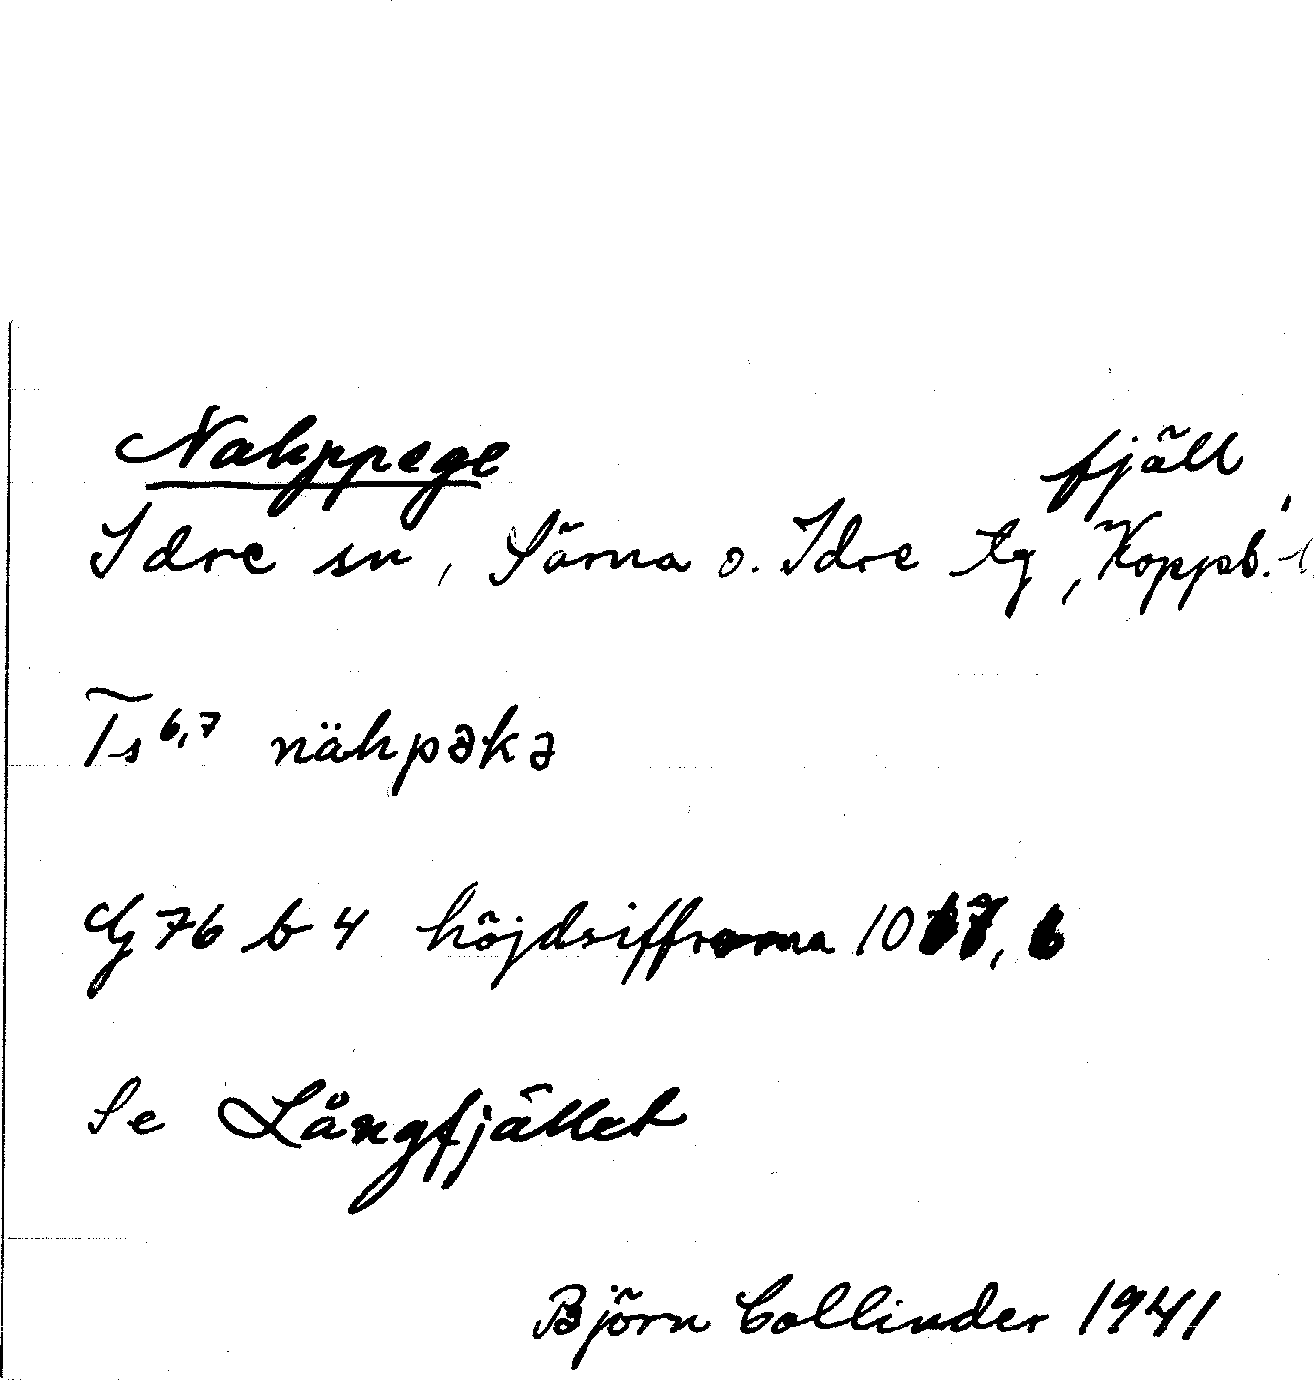 Nahppege
fjäll
Idre sn, Särna o. Idre tg, Koppb. l
Ts 6,7 nähpəkə
G 76 b 4 höjdsiffrorna 1017,6
Se Långfjället
Björn Collinder 1941